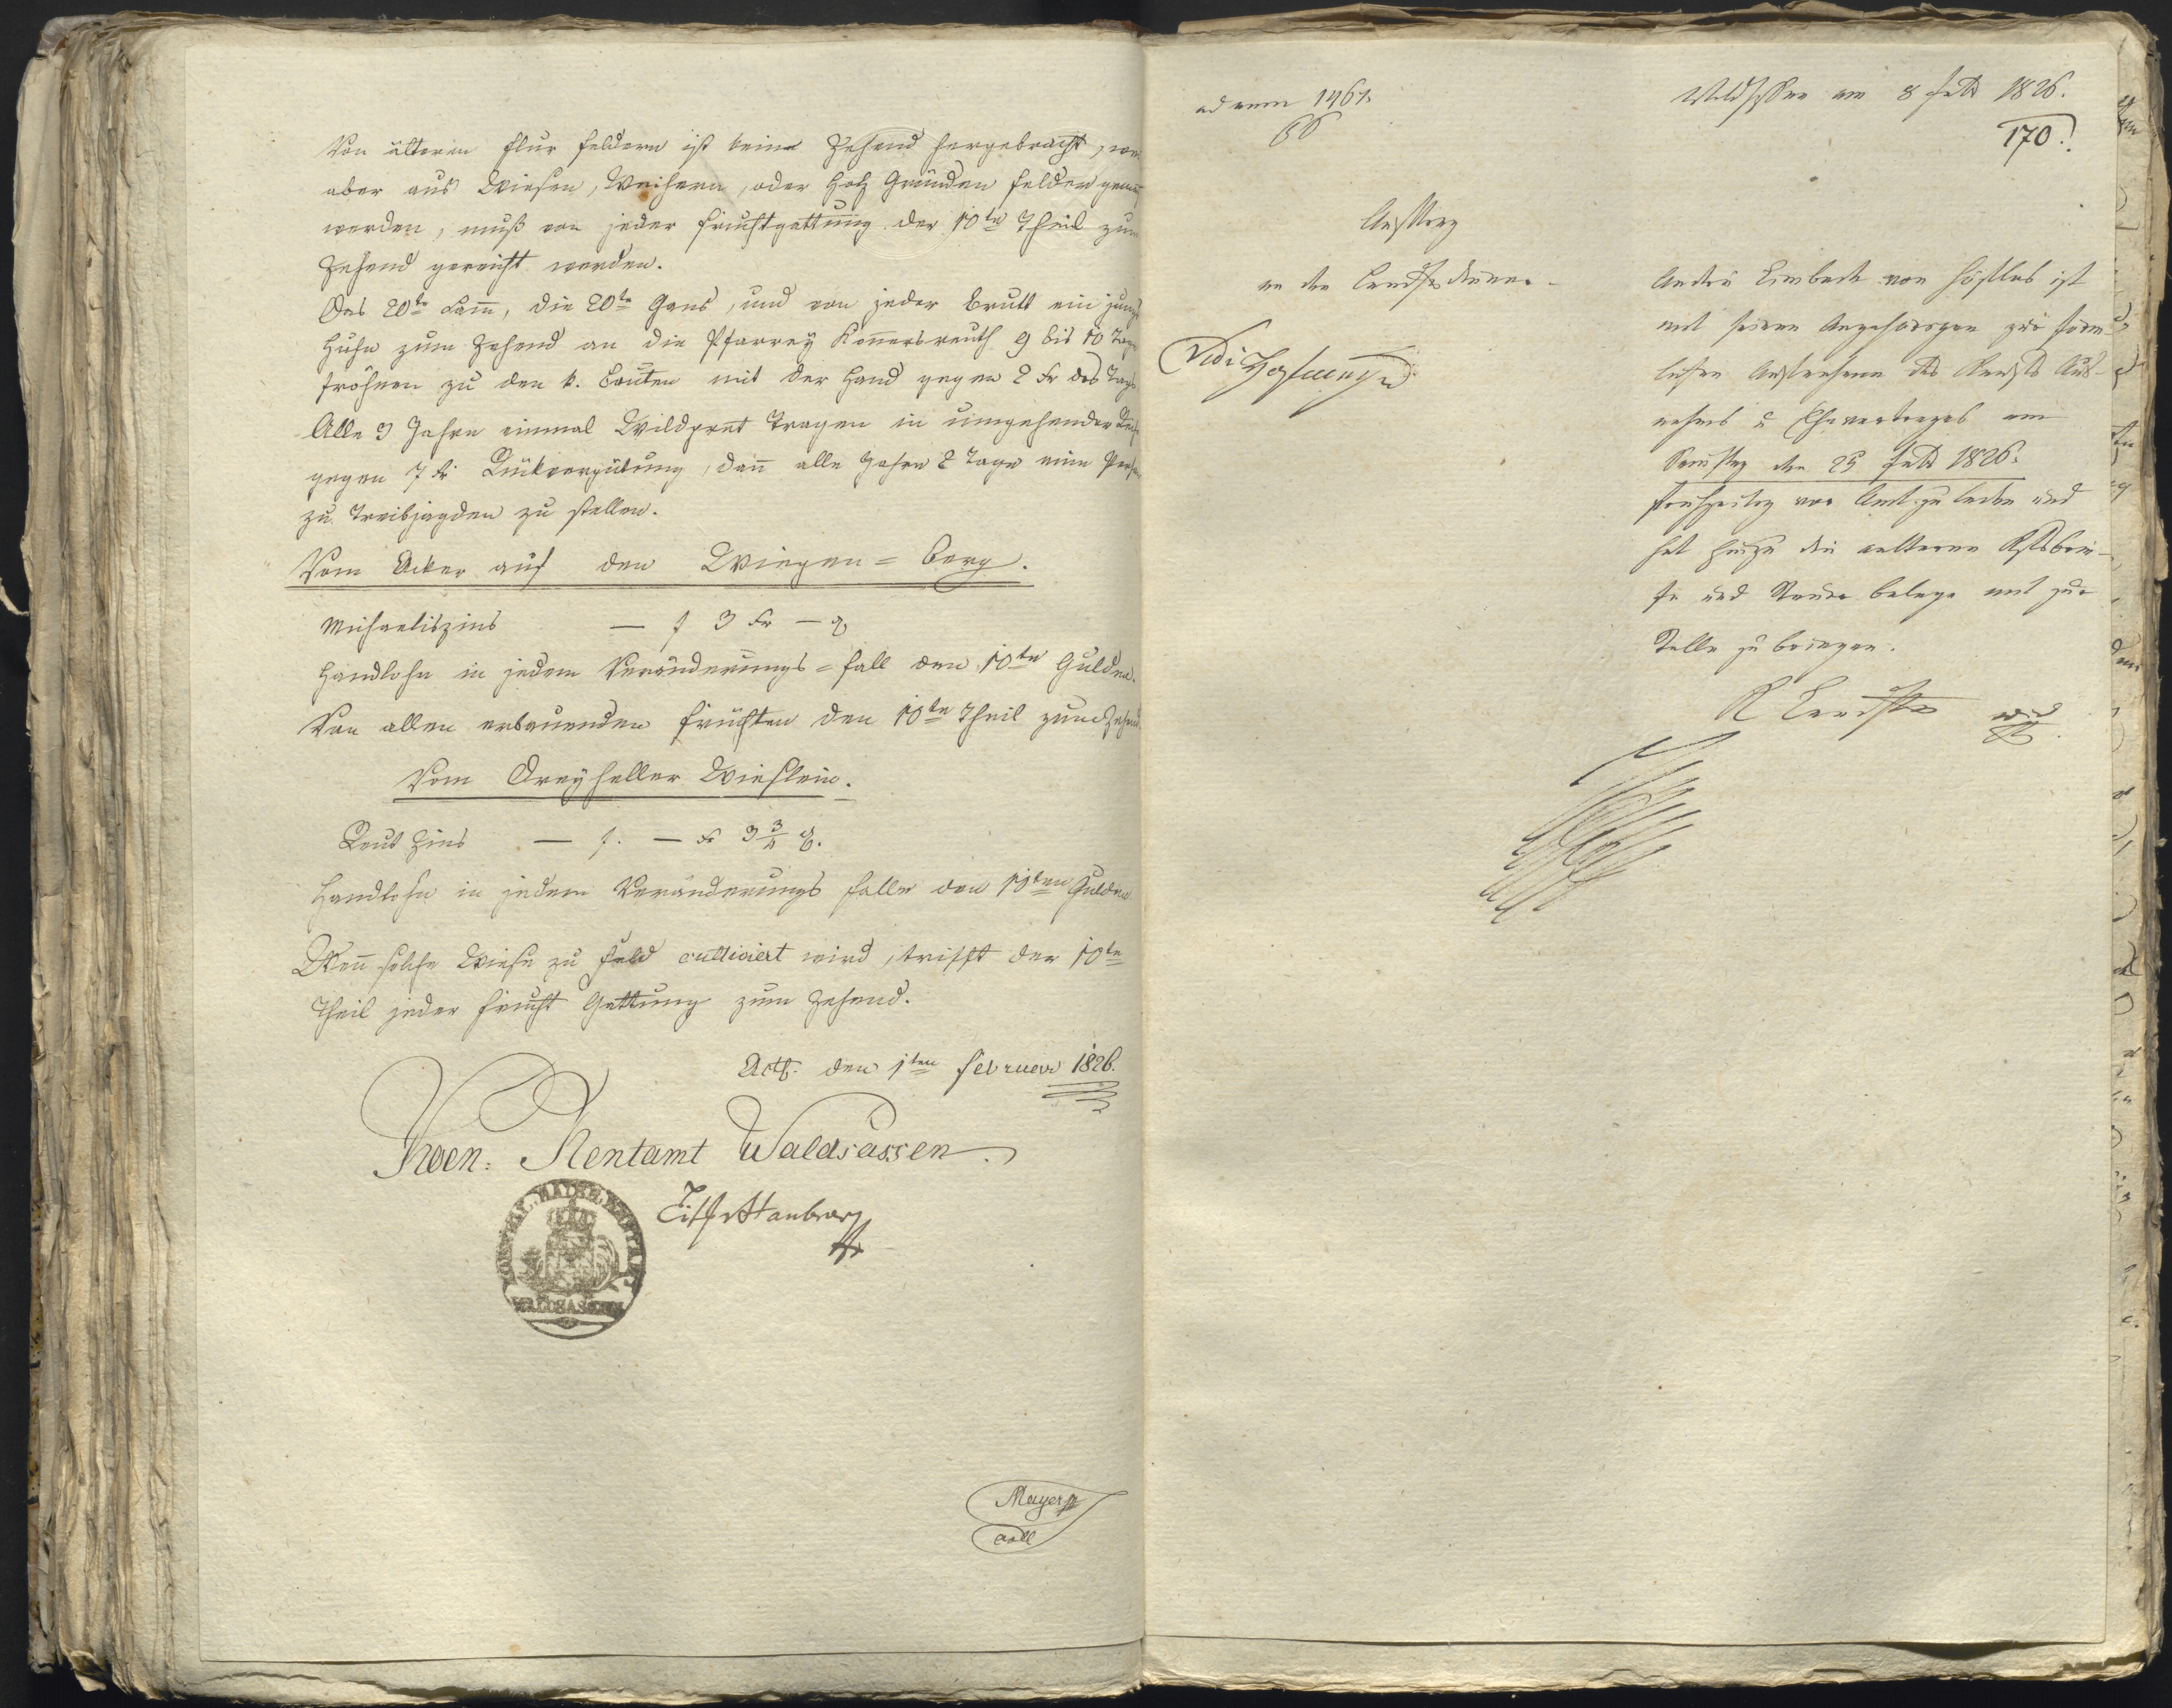 Von älteren Flur Feldern ist keine Zehend hergebracht, wen
aber aus Wiesen, Weihern, oder Holz Gründen Felder gema
werden, muß von jeder Fruchtgattung der 10te Theil zum
Zehend gereicht werden.
Das 20te Lam̄, die 20te Gans, und von jeder Brutt ein jung
Huhn zum Zehend an die Pfarrey Kon̄ersreuth 9 bis 10 Tage
fröhnen zu den k. Bauten mit der Hand gegen 2 Kr des Tags
Alle 3 Jahre einmal Wildpret Tragen in umgehender Reihe
gegen 7 Kr Rückvergütung, dan̄ alle Jahre 2 Tage eine Person
zu Treibjagden zu stellen.
Vom Acker auf den Wiegen=Berg.
Michaeliszins — f 3 Kr — ₰
Handlohn in jedem Veränderungs=fall den 10te Gulden.
Von allen erbauenden Früchten den 10te Theil zum Zehend
Vom Dreyheller Wieslein.
Reut Zins — f. — Kr 3 3/4 ₰.
Handlohn in jedem Veränderungs falle den 10ten Gulden
Wen̄ solche Wiese zu Feld cultiviert wird, trifft der 10te
Theil jeder Frucht Gattung zum Zehend.
Act. den 1ten Februar 1826.
Koen: Rentamt Waldsassen.
KOENIGL. BAIER. RENTAMT
WALDSASSEN
Mayer
coll
ad num 1461.
Waldsassen am 8 Feb 1826.
170.
Auftrag
an den Landgdiener.
Vidi
Andrä Limbeck von Höflas ist
mit seinen Angehörigen zur förm
lichen des Kaufs Aus-
nahms u Ehevertrages am
Samstag den 25 Feb 1826.
frühzeitig vor Amt zu laden und
hat hiezu die aelteren Besbrie-
fe und Steuer belege mit zur
Stelle zu bringen.
K Landg